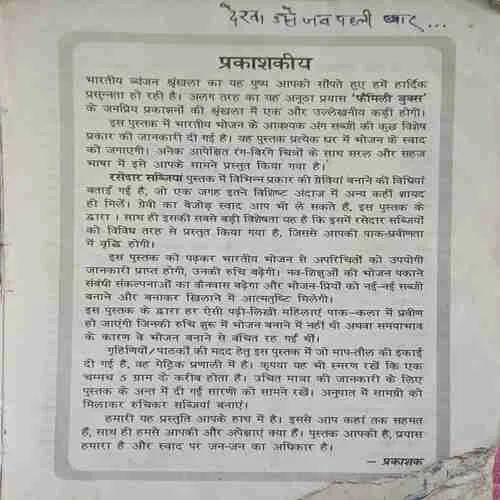 देखा उसे जब पहली बार ...
प्रकाशकीय
भारतीय व्यंजन श्रृंखला का यह पुष्प आपको सौंपते हुए हमें हार्दिक
प्रसन्नता हो रही है। अलग तरह का यह अनूठा प्रयास 'फैमिली बुक्स'
के जनप्रिय प्रकाशनों की श्रृंखला में एक और उल्लेखनीय कड़ी होगी।
इस पुस्तक में भारतीय भोजन के आवश्यक अंग सब्जी की कुछ विशेष
प्रकार की जानकारी दी गई है। यह पुस्तक प्रत्येक घर में भोजन के स्वाद
को जगाएगी। अनेक आपेक्षित रंग-बिरंगे चित्रों के साथ सरल और सहज
भाषा में इसे आपके सामने प्रस्तुत किया गया है।
रसेदार सब्जियां पुस्तक में विभिन्न प्रकार की ग्रेवियां बनाने की विधियां
बताई गई है, जो एक जगह इतने विशिष्ट अंदाज में अन्य कहीं शायद
ही मिलें। ग्रेवी का बेजोड़ स्वाद आप भी ले सकते हैं, इस पुस्तक के
द्वारा । साथ ही इसकी सबसे बड़ी विशेषता यह है कि इसमें रसेदार सब्जियों
को विविध तरह से प्रस्तुत किया गया है, जिससे आपकी पाक-प्रवीणता
में वृद्धि होगी।
इस पुस्तक को पढ़कर भारतीय भोजन से अपरिचितों को उपयोगी
जानकारी प्राप्त होगी, उनकी रुचि बढ़ेगी। नव-शिशुओं की भोजन पकाने
संबंधी संकल्पनाओं का कैनवास बढ़ेगा और भोजन-प्रियों को नई-नई सब्जी
बनाने और बनाकर खिलाने में आत्मतुष्टि मिलेगी।
इस पुस्तक के द्वारा हर ऐसी पढ़ी-लिखी महिलाएं पाक-कला में प्रवीण
हो जाएंगी जिनकी रुचि शुरू में भोजन बनाने में नहीं थी अथवा समयाभाव
के कारण वे भोजन बनाने से वंचित रह गई थीं।
गृहिणियों/पाठकों की मदद हेतु इस पुस्तक में जो माप-तौल की इकाई
दी गई है, वह मैट्रिक प्रणाली में है। कृपया यह भी स्मरण रखें कि एक
चम्मच 5 ग्राम के करीब होता है। उचित मात्रा की जानकारी के लिए
पुस्तक के अन्त में दी गई सारणी को सामने रखें। अनुपात में सामग्री को
मिलाकर रुचिकर सब्जियां बनाएं।
हमारी यह प्रस्तुति आपके हाथ में है। इससे आप कहां तक सहमत
हैं, साथ ही हमसे आपकी और अपेक्षाएं क्या हैं। पुस्तक आपकी है, प्रयास
हमारा है और स्वाद पर जन-जन का अधिकार है।
– प्रकाशक